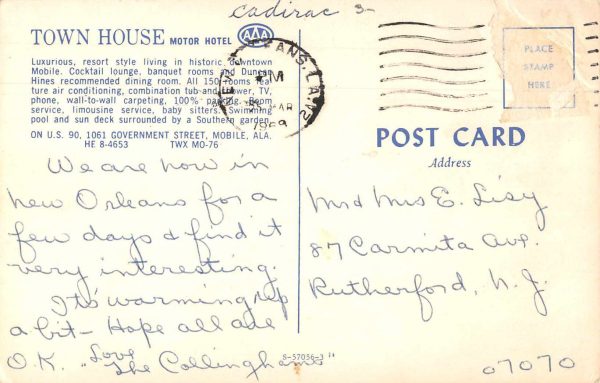 cadirac 3-
TOWN HOUSE MOTOR HOTEL AAA
Luxurious, resort style living in historic downtown
Mobile. Cocktail lounge, banquet rooms and Duncan
Hines recommended dining room. All 150 rooms fea
ture air conditioning, combination tub-and-shower, TV,
phone, wall-to-wall carpeting, 100% parking. Room
service, limousine service, baby sitters. Swimming
pool and sun deck surrounded by a Southern garden.
ON U.S. 90, 1061 GOVERNMENT STREET, MOBILE, ALA.
HE 8-4653 TWX MO-76
NEW ORLEANS, LA
PM
MAR
1969
PLACE
STAMP
HERE
POST CARD
Address
We are now in
new Orleans for a
few days & find it
very interesting.
Its' warming up
a bit - Hope all are
O.K. Love
The Collinghams
Mr & Mrs E. Lisy
87 Carmita Ave.
Rutherford, N.J.
07070
S-57056-3